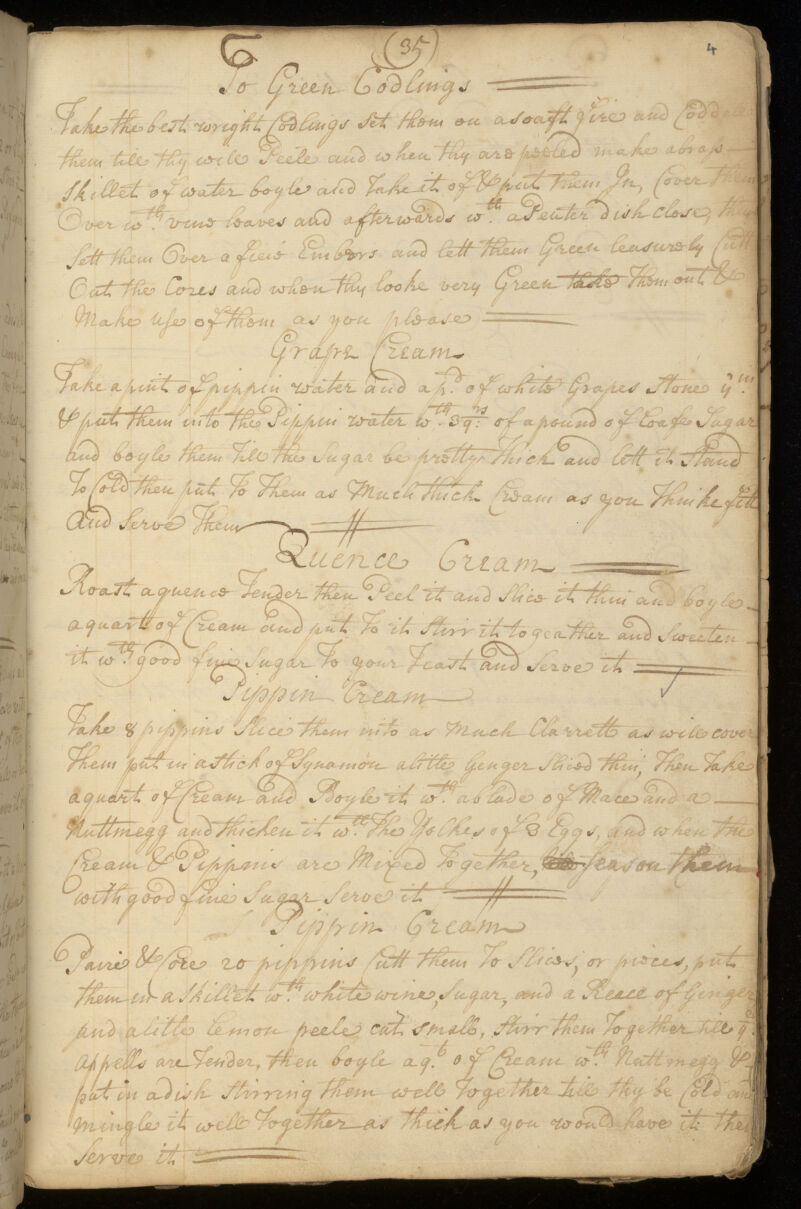 (35)
4
To Green Codlings
Take the best wright Codlings set them on a soaft fire and Coddle
them till thy will Peele and when thy are peeled make a brass
skillet of water boyle and Take it of & put them In, Cover them
Over wth. vine leaves and afterwards wth. a Peuter dish close, then
Sett them Over a fiew Embers and lett them Green leasurely Cutt
Out the Cores and when thy looke very Green take Them out &
Make use of them as you please
Grape Cream
Take a pint of pippin water and a pd. of white Grapes Stone ym.
& put them into the Pippin water wth. 3 qrs. of a pound of Loafe Sugar
and boyle them Till the Sugar be pretty Thick and lett it Stand
To Cold then put To Them as Much thick Cream as you Thinke fitt
And Serve Them
Quence Cream
Roast a quence Tender then Peel it and Slice it thin and boyle
a quart of Cream and put To it Stirr it togeather and Sweeten
it wth. good fine Sugar To your Teast and Serve it
Pippin Cream
Take 8 pippins Slice them into as Much Clarrett as will cover
Them put in a stick of Synamon a little Genger Sliced thin, Then Take
a quart of Cream and Boyle it wth. a blade of Mace and a
Nuttmegg and thicken it wth. The Yolkes of 3 Eggs, and when the
Cream & Pippins are Mixed Together, season them
with good fine Sugar Serve it
Pippin Cream
Paire & Core 20 pippins Cutt them To Slices, or pieces, put
them in a Skillet wth. white wine, Sugar, and a Reace of Ginger
and a little lemon peele cut small, Stirr them Together till ye.
Appells are Tender, then boyle a qt. of Cream wth. Nuttmegg &
put in a dish Stirring them well Together till thy be Cold and
mingle it well Together as thick as you would have it then
Serve it